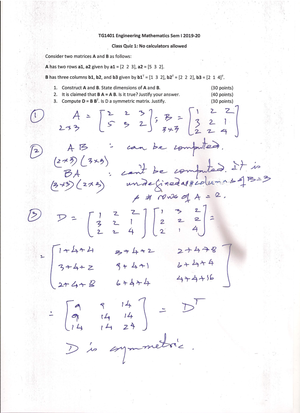 TG1401 Engineering Mathematics Sem I 2019-20
Class Quiz 1: No calculators allowed
Consider two matrices A and B as follows:
A has two rows a1, a2 given by a1 = [2 2 3], a2 = [5 3 2].
B has three columns b1, b2, and b3 given by b1ᵀ = [1 3 2], b2ᵀ = [2 2 2], b3 = [2 1 4]ᵀ.
1. Construct A and B. State dimensions of A and B. (30 points)
2. It is claimed that B A = A B. Is it true? Justify your answer. (40 points)
3. Compute D = B Bᵀ. Is D a symmetric matrix. Justify. (30 points)
① A = [2 2 3 ; B = [1 2 2
2x3 5 3 2] 3x3 3 2 1
2 2 4]
② A B : can be computed.
(2x3) (3x3)
BA : can't be computed. It is
(3x3) (2x3) undefined as # columns of B = 3
≠ # rows of A = 2.
③ D = [1 2 2 [1 3 2
3 2 1 2 2 2 =
2 2 4] 2 1 4]
= [1+4+4 3+4+2 2+4+8
3+4+2 9+4+1 6+4+4
2+4+8 6+4+4 4+4+16]
= [9 9 14
9 14 14 = Dᵀ
14 14 24]
D is symmetric.